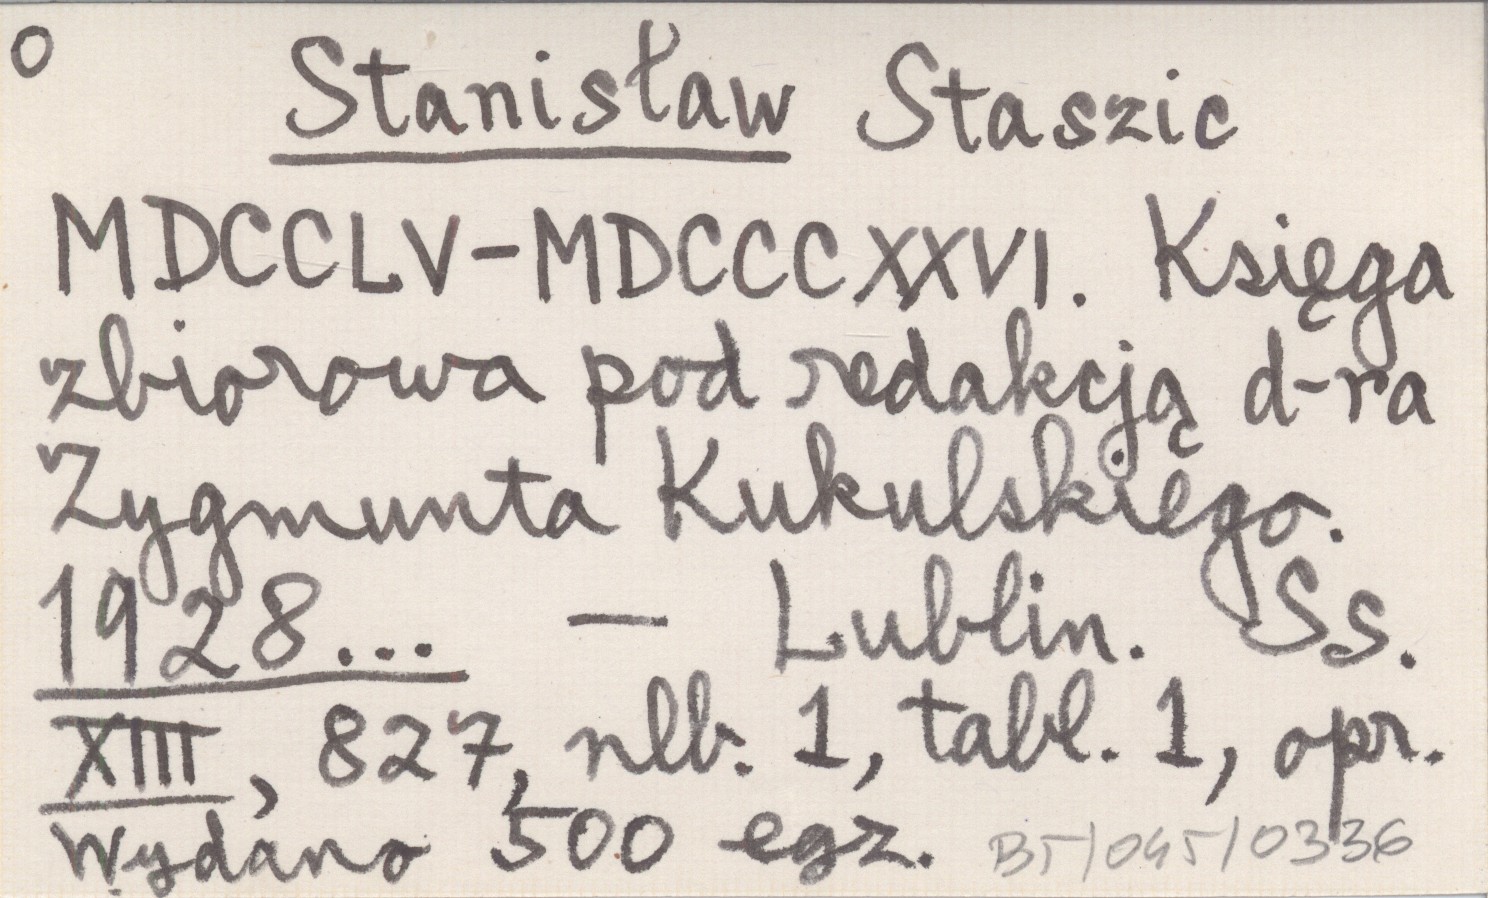 O Stanisław Staszic
MDCCLV-MDCCCXXVI. Księga
zbiorowa pod redakcją d-ra
Zygmunta Kukulskiego.
1928... — Lublin. Ss.
XIII, 827, nlb. 1, tabl. 1, opr.
Wydano 500 egz. BT/045/0336